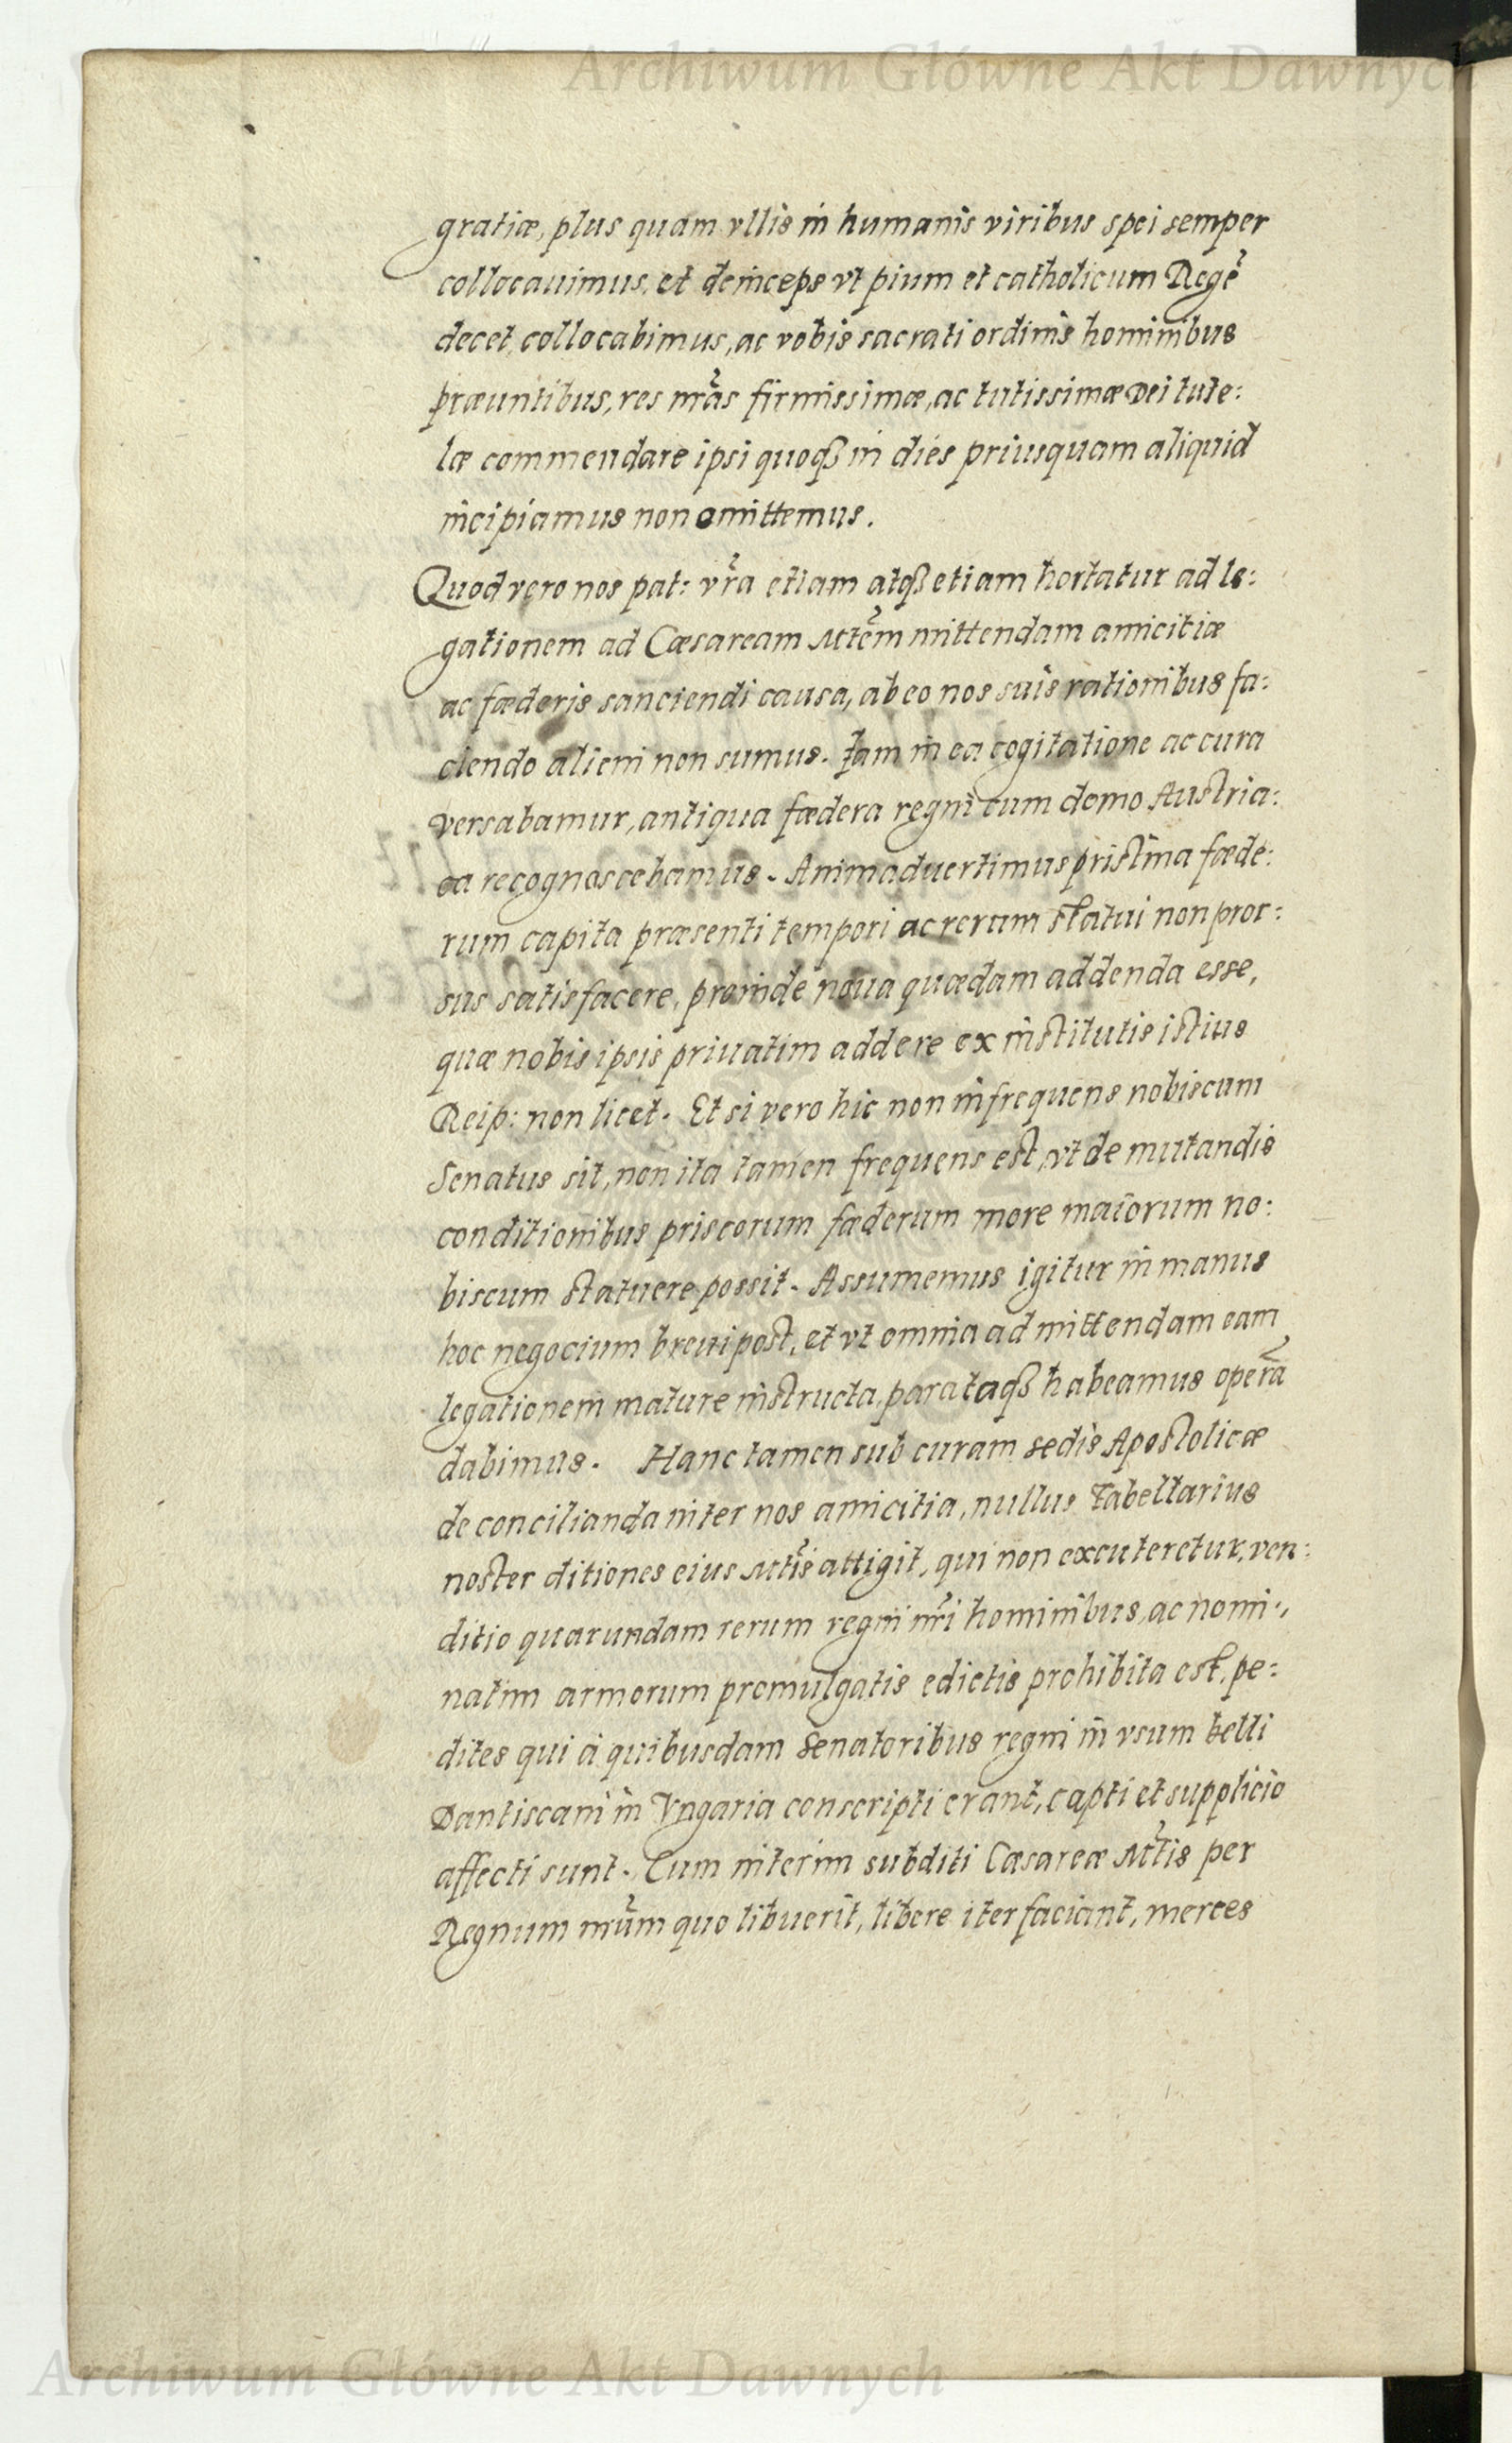 Archiwum Główne Akt Dawnych
gratiæ, plus quam vllis in humanis viribus spei semper
collocauimus, et deinceps vt pium et catholicum Regẽ
decet, collocabimus, ac vobis sacrati ordinis hominibus
præuntibus, res nr̃as firmissimæ, ac tutissimæ Dei tute:
læ commendare ipsi quoqꝫ in dies priusquam aliquid
incipiamus non omittemus.
Quod vero nos pat: vr̃a etiam atqꝫ etiam hortatur ad le:
gationem ad Cæsaream Mtẽm mittendam amicitiæ
ac fæderis sanciendi causa, ab eo nos suis rationibus fa:
ciendo alieni non sumus. Iam in ea cogitatione ac cura
versabamur, antiqua fædera regni cum domo Austria:
ca recognoscebamus. Animaduertimus pristina fæde:
rum capita præsenti tempori ac rerum statui non pror:
sus satisfacere, proinde noua quædam addenda esse,
quæ nobis ipsis priuatim addere ex institutis istius
Reip: non licet. Et si vero hic non infrequens nobiscum
Senatus sit, non ita tamen frequens est, vt de mutandis
conditionibus priscorum fæderum more maiorum no:
biscum statuere possit. Assumemus igitur in manus
hoc negocium breui post, et vt omnia ad mittendam eam
legationem mature instructa, parataqꝫ habeamus operã
dabimus. Hanc tamen sub curam sedis Apostolicæ
de concilianda inter nos amicitia, nullus Tabellarius
noster ditiones eius Mtĩs attigit, qui non excuteretur, ven:
ditio quarundam rerum regni nr̃i hominibus, ac nomi:
natim armorum promulgatis edictis prohibita est, pe:
dites qui à quibusdam Senatoribus regni in vsum belli
Dantiscani in Vngaria conscripti erant, capti et supplicio
affecti sunt. Cum interim subditi Cæsareæ Mt̃is per
Regnum nr̃um quo libuerit, libere iter faciant, merces
Archiwum Główne Akt Dawnych